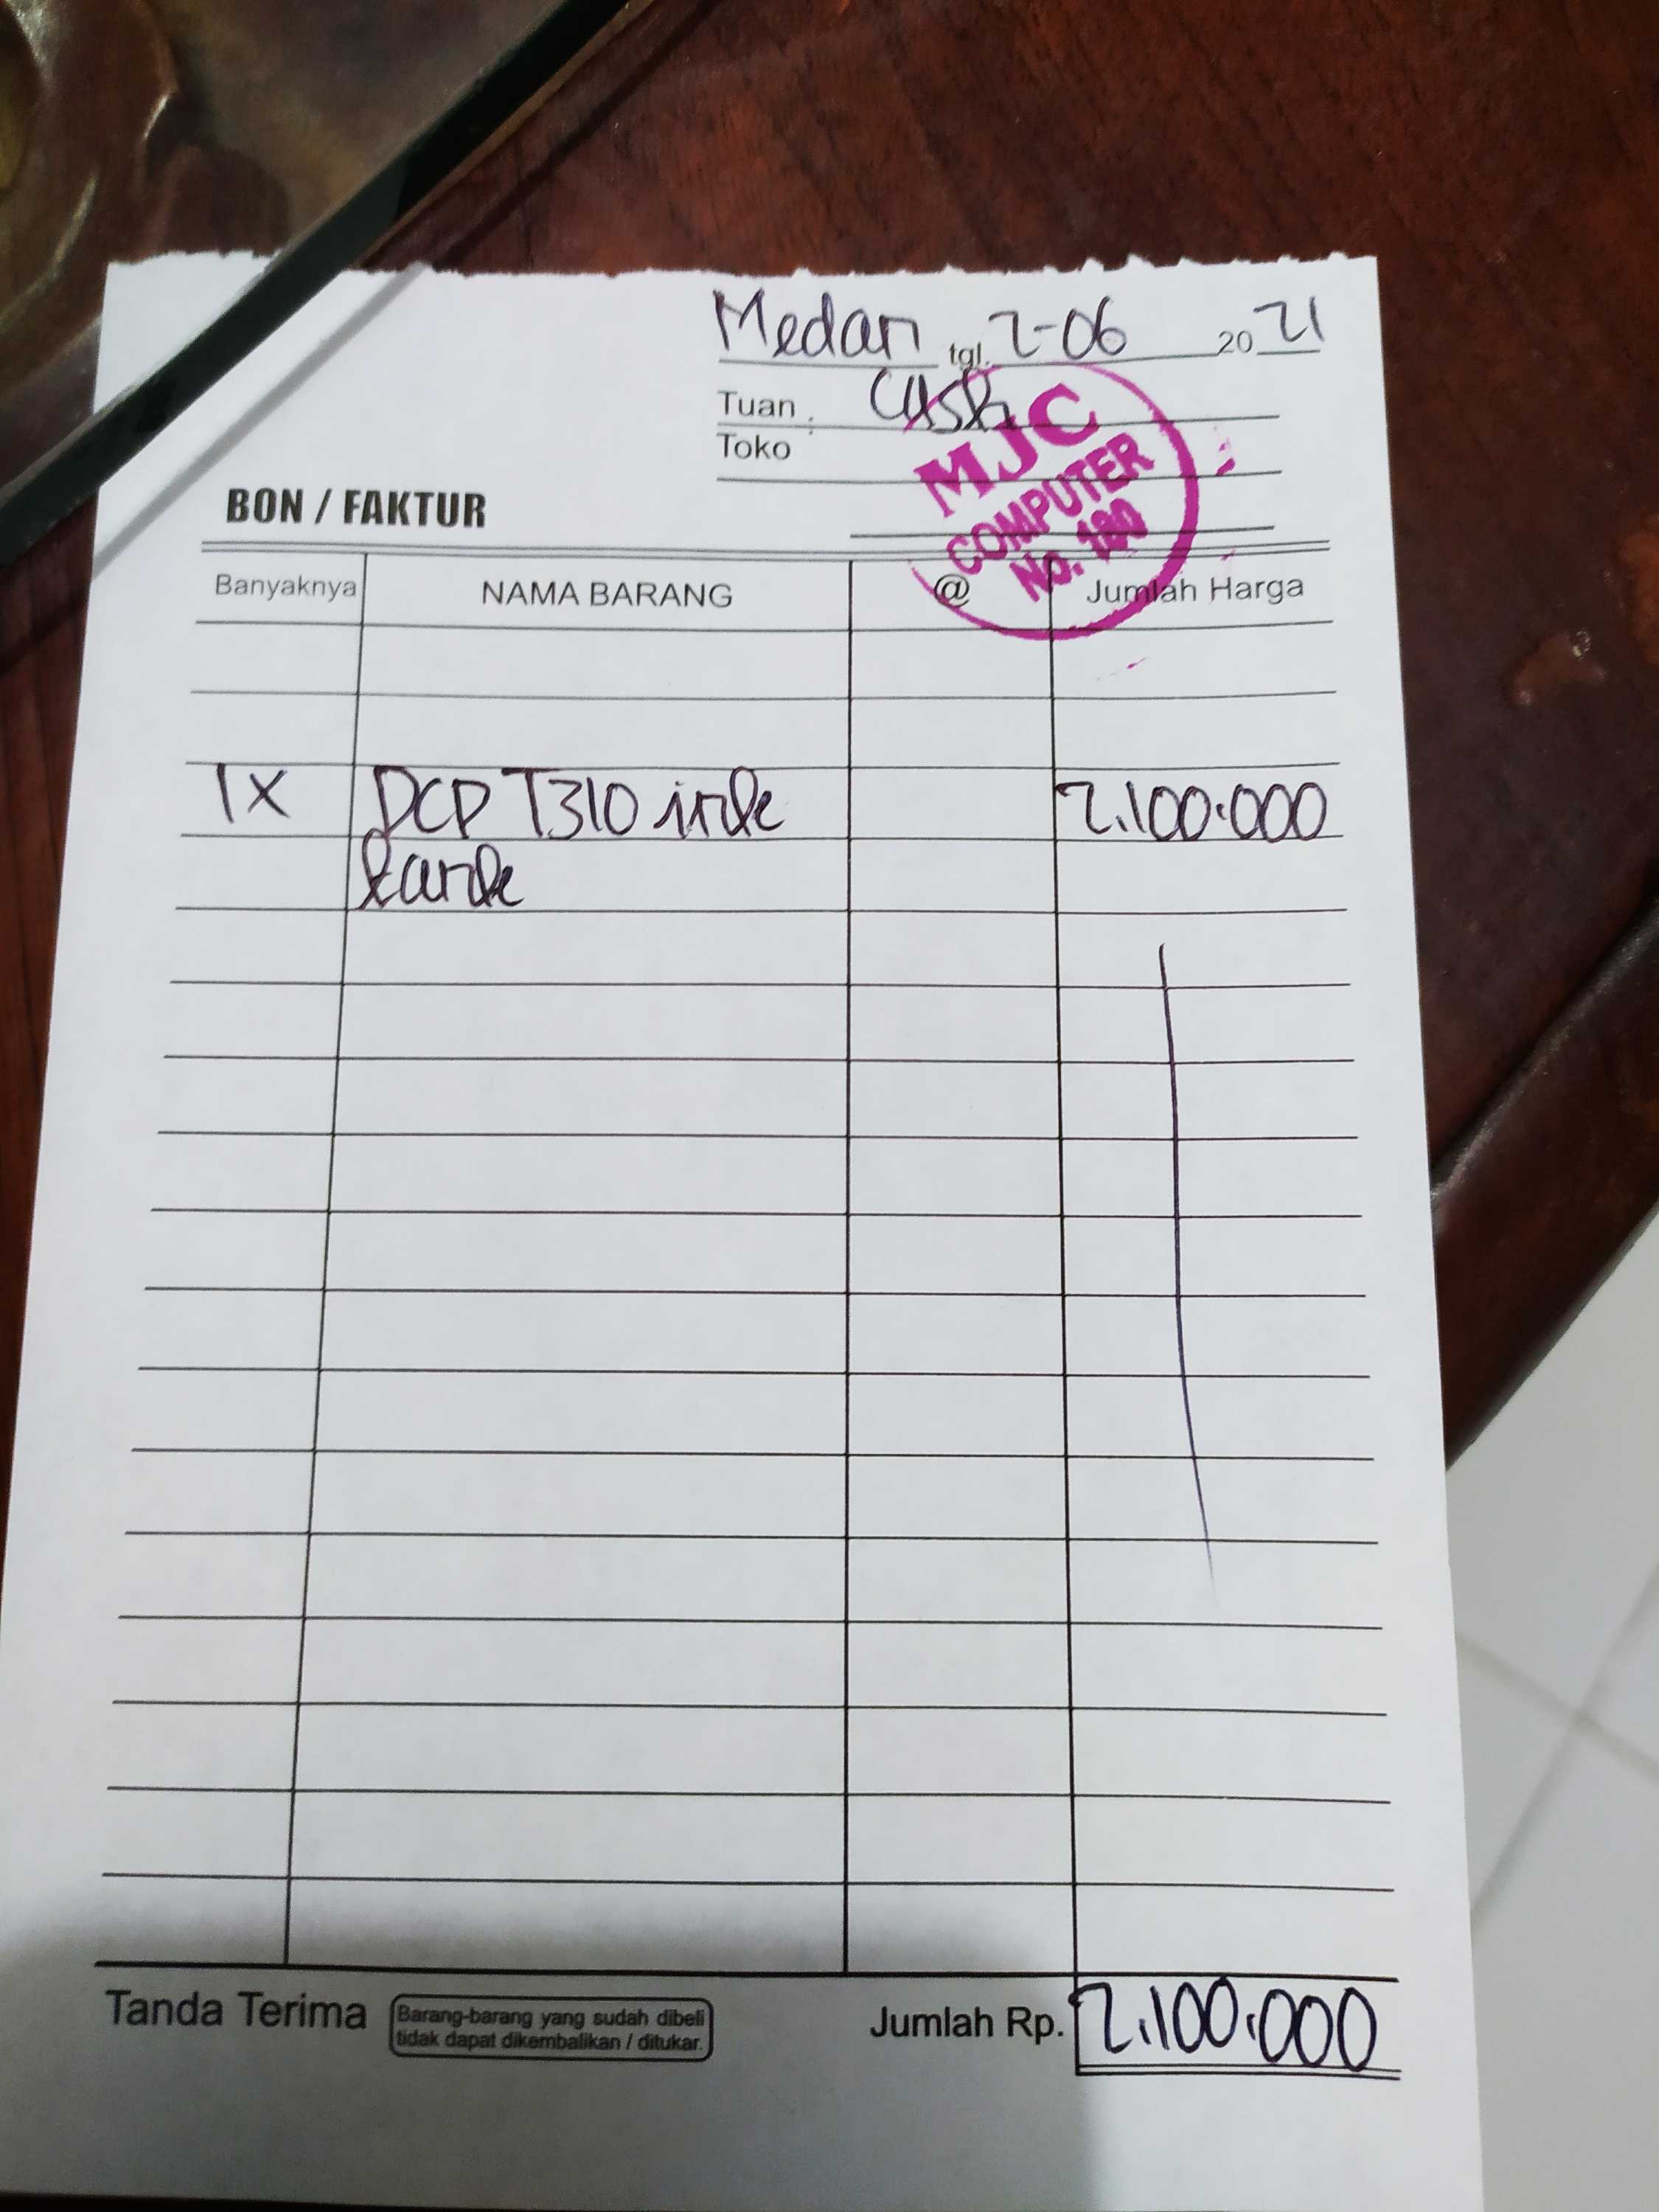 Medan tgl. 2-06 2021
Tuan : Cash
Toko
MJC
COMPUTER
No.
BON / FAKTUR
Banyaknya NAMA BARANG @ Jumlah Harga
1X DCP T310 ink 2.100.000
tank
Tanda Terima Barang-barang yang sudah dibeli tidak dapat dikembalikan / ditukar. Jumlah Rp. 2.100.000